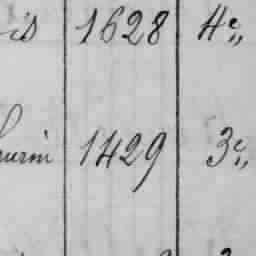 is 1628 4e„
urin 1429 3e„